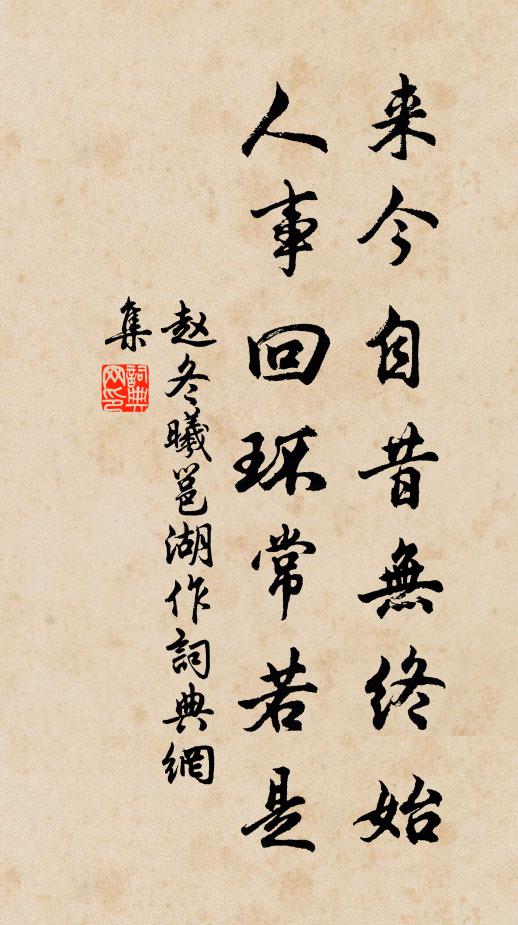 来今自昔無終始
人事回环常若是
赵冬曦邕湖作詞典網
集
詞典
网印